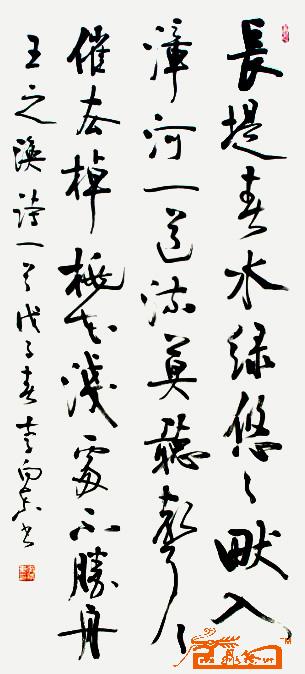 長堤春水绿悠々畎入
漳河一道流莫聽聲々
催去棹桃花淺處不勝舟
王之渙詩一首戊子春李向东书